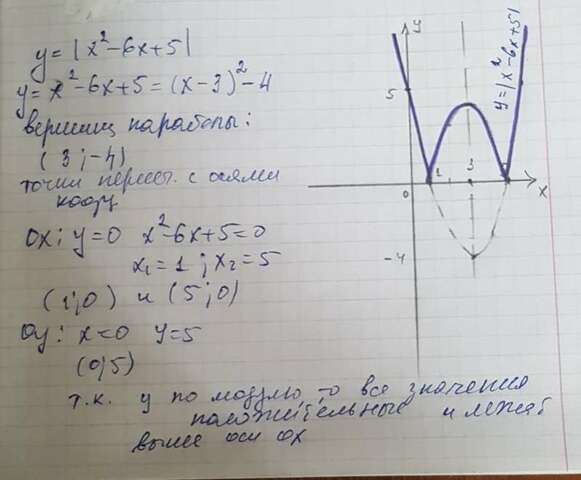 y = |x²-6x+5|
y = x²-6x+5 = (x-3)²-4
вершины параболы:
(3; -4)
точки перес. с осями
коор
ox: y=0 x²-6x+5=0
x₁=1; x₂=5
(1; 0) и (5; 0)
oy: x=0 y=5
(0; 5)
т.к. y по модулю, то все значения
положительные и лежат
выше оси ox
y
5
1
3
0
x
-4
y=|x²-6x+5|